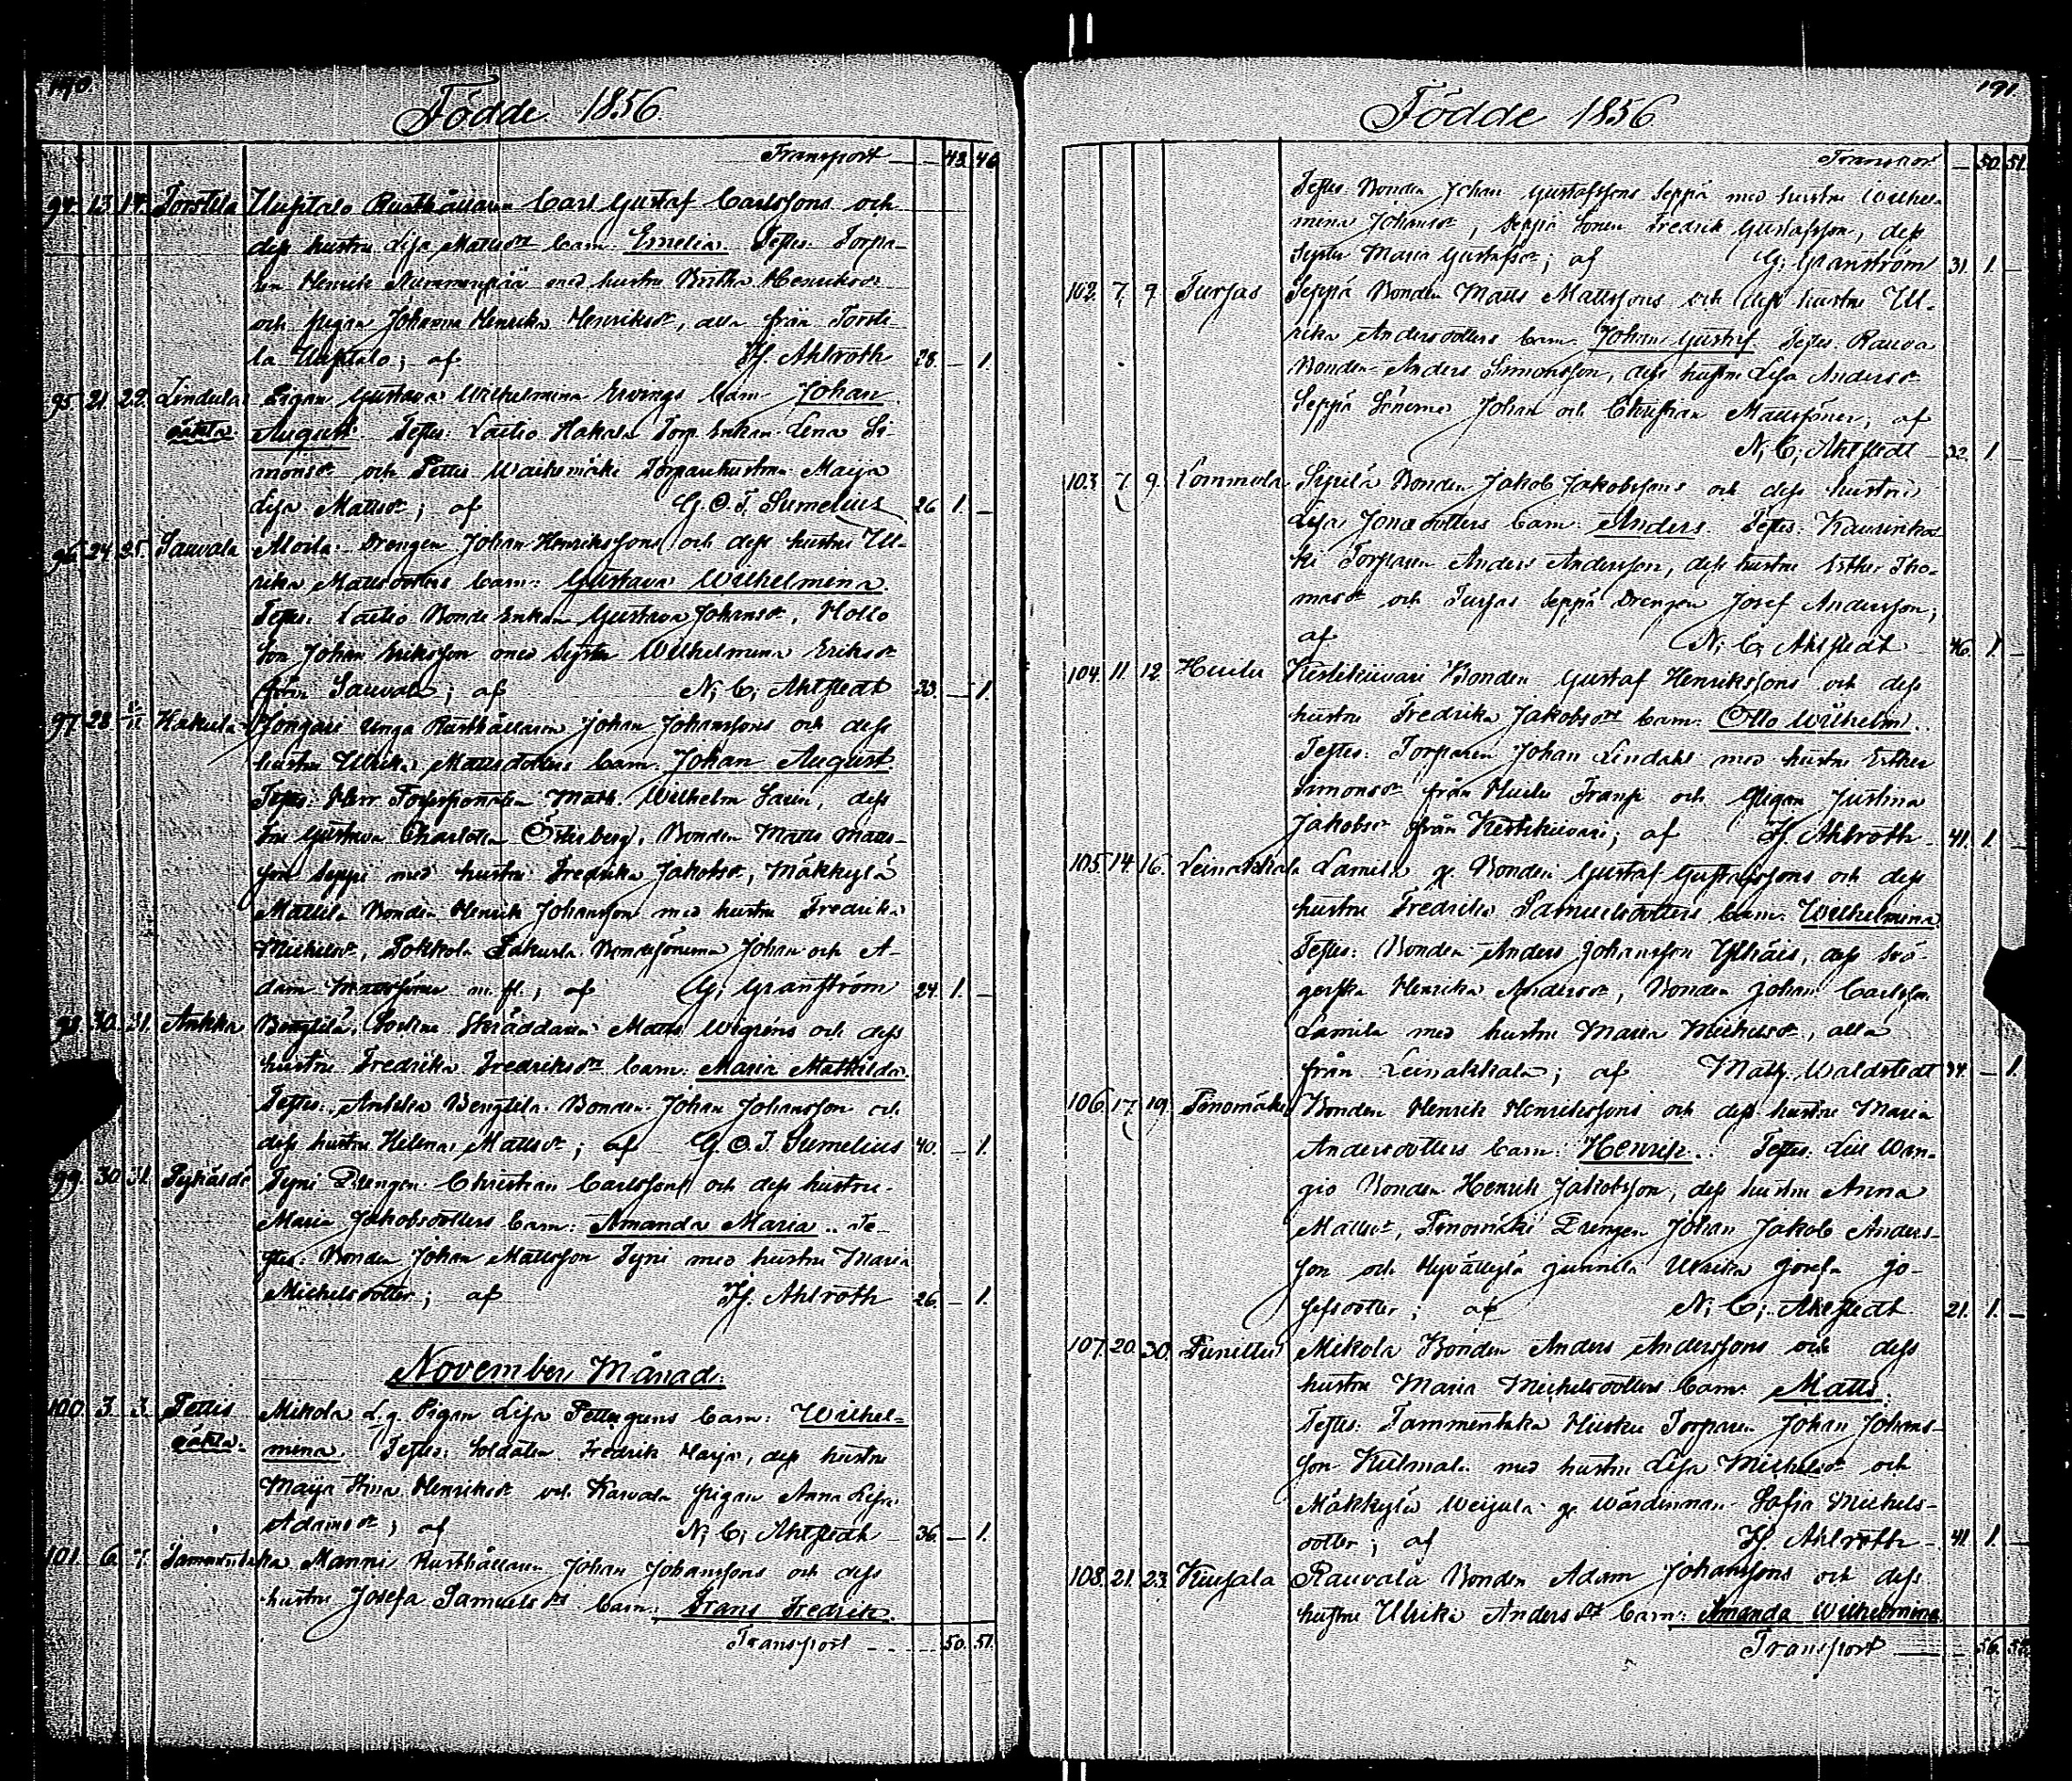 190.
Födde 1856.
Transport 43. 46
94. 13. 17. Torstila Uusitalo Rusthållaren Carl Gustaf Carlssons och
dess hustru Lisa Mattsdr barn: Emelia. Testes: Torpa-
ren Henrik Nummenpää med hustru Britha Henriksdr
och pigan Johanna Henrika Henriksdr, alla från Torsti-
la Uusitalo; af Hj. Ahlroth 28. – 1.
95. 21. 22. Lindula Pigan Gustava Wilhelmina Ervings barn Johan
oäkta August. Testes: Laitio Hakala Torp. Enkan Lena Si-
monsdr och Pettis Torparehustrun Maija
Lisa Mattsdr; af G. O. T. Sumelius 26 1. –
96. 24. 25. Sauvala Moila Drengen Johan Henrikssons och dess hustru Ul-
rika Mattsdotters barn: Gustava Wilhelmina.
Testes: Laitio Bonde Enkan Gustava Johansdr, Hollo
Son Johan Eriksson med Syster Wilhelmina Eriksdr
från Sauvala; af N; C; Ahlstedt 33. – 1.
97. 28. Hakula Jongari Unga Rusthållaren Johan Johanssons och dess
hustru Ulrika Mattsdotters barn: Johan August.
Testes: Herr Math. Wilhelm, dess
Fru Gustava Charlotta Österberg, Bonden Matts Matts-
son Seppi med hustru Fredrika Jakobsdr, Mäkkylä
Mattila Bonden Henrik Johansson med hustru Fredrika
Michelsdr, Pokkola Bondesönerna Johan och A-
dam Mattssöner m. fl.; af G; Granström 24. 1. –
98. 30. 31. Ankka Bengtilä Skräddaren Matts Wigrens och dess
hustru Fredrika Fredriksdrs barn: Maria Mathilda.
Testes: Bengtila Bonden Johan Johansson och
dess hustru Helena Mattsdr; af G. O. T. Sumelius 40. – 1.
99. 30. 31. Tyni Drengen Christian Carlssons och dess hustru
Maria Jakobsdotters barn: Amanda Maria. Te-
stes: Bonden Johan Mattsson Tyni med hustru Maria
Michelsdotter; af Hj. Ahlroth 26. – 1.
November Månad.
100. 3. 3. Pettis Mikola L.g. Pigan Lisa Pettersgrens barn: Wilhel-
oäkta. mina. Testes: Soldaten Fredrik Harja, dess hustru
Maija Stina Henriksdr och Karvala pigan Anna Lisa
Adamsdr; af N; C; Ahlstedt 36. – 1.
101. 6. 7. Tammentaka Manni Rusthållaren Johan Johanssons och dess
hustru Josefa Samuelsdrs barn: Frans Fredrik.
Transport 50. 51.
191.
Födde 1856
Transport 50. 51.
Testes: Bonden Johan Gustafssons Seppä med hustru Wilhel-
mina Johansdr, Seppä Sonen Fredrik Gustafsson, dess
Syster Maria Gustafsdr; af G; Granström 31. 1. –
102. 7. 9. Tursas Seppä Bonden Matts Mattssons och dess hustru Ul-
rika Andersdotters barn: Johan Gustaf. Testes: Rauva
Bonden Anders Simonsson, dess hustru Lisa Andersdr
Seppä Sönerna Johan och Christian Mattssöner; af
N; C; Ahlstedt 32. 1. –
103. 7. 9. Lommola Sipilä Bonden Jakob Jakobssons och dess hustru
Lisa Jonædotters barn: Anders. Testes: Kaurinkos-
ki Torparen Anders Andersson, dess hustru Esther Tho-
masdr och Tursas Seppä Drengen Josef Andersson;
af N; C; Ahlstedt 46. 1. –
104. 11. 12. Huilu Keskikiivari Bonden Gustaf Henrikssons och dess
hustru Fredrika Jakobsdrs barn: Otto Wilhelm.
Testes: Torparen Johan Lindahl med hustru Esther
Simonsdr från Huilu Fransi och pigan Justina
Jakobsdr från Keskikiivari; af Hj. Ahlroth 41. 1. –
105. 14. 16. Leinakkala Lamila g. Bonden Gustaf Gustafssons och dess
hustru Fredrika Samuelsdotters barn: Wilhelmina.
Testes: Bonden Anders Johansson Ylhäis, dess Svä-
gerska Henrika Andersdr, Bonden Johan Carlsson
Lamila med hustru Maria Michelsdr, alla
från Leinakkala; af Math. Waldstedt 34. – 1.
106. 17. 19. Sinomäki Bonden Henrik Henrikssons och dess hustru Maria
Andersdotters barn: Henrik. Testes: Lill Wan-
gio Bonden Henrik Jakobsson, dess hustru Anna
Mattsdr, Sinomäki Drengen Johan Jakob Anders-
son och Hyvälkylä Junnila Ulrika Josefa Jo-
sefsdotter; af N; C; Ahlstedt 21. 1. –
107. 20. 30. Punittu Mikola Bonden Anders Anderssons och dess
hustru Maria Michelsdotters barn: Matts.
Testes: Tammentaka Torparen Johan Johans-
son Kulmala med hustru Lisa Michelsdr och
Mäkkylä Weijula g. Wärdinnan Sofia Michels-
dotter; af Hj. Ahlroth 41. 1. –
108. 21. 23. Kiusala Rauvala Bonden Adam Johanssons och dess
hustru Ulrika Andersdrs barn: Amanda Wilhelmina.
Transport 56. 52.